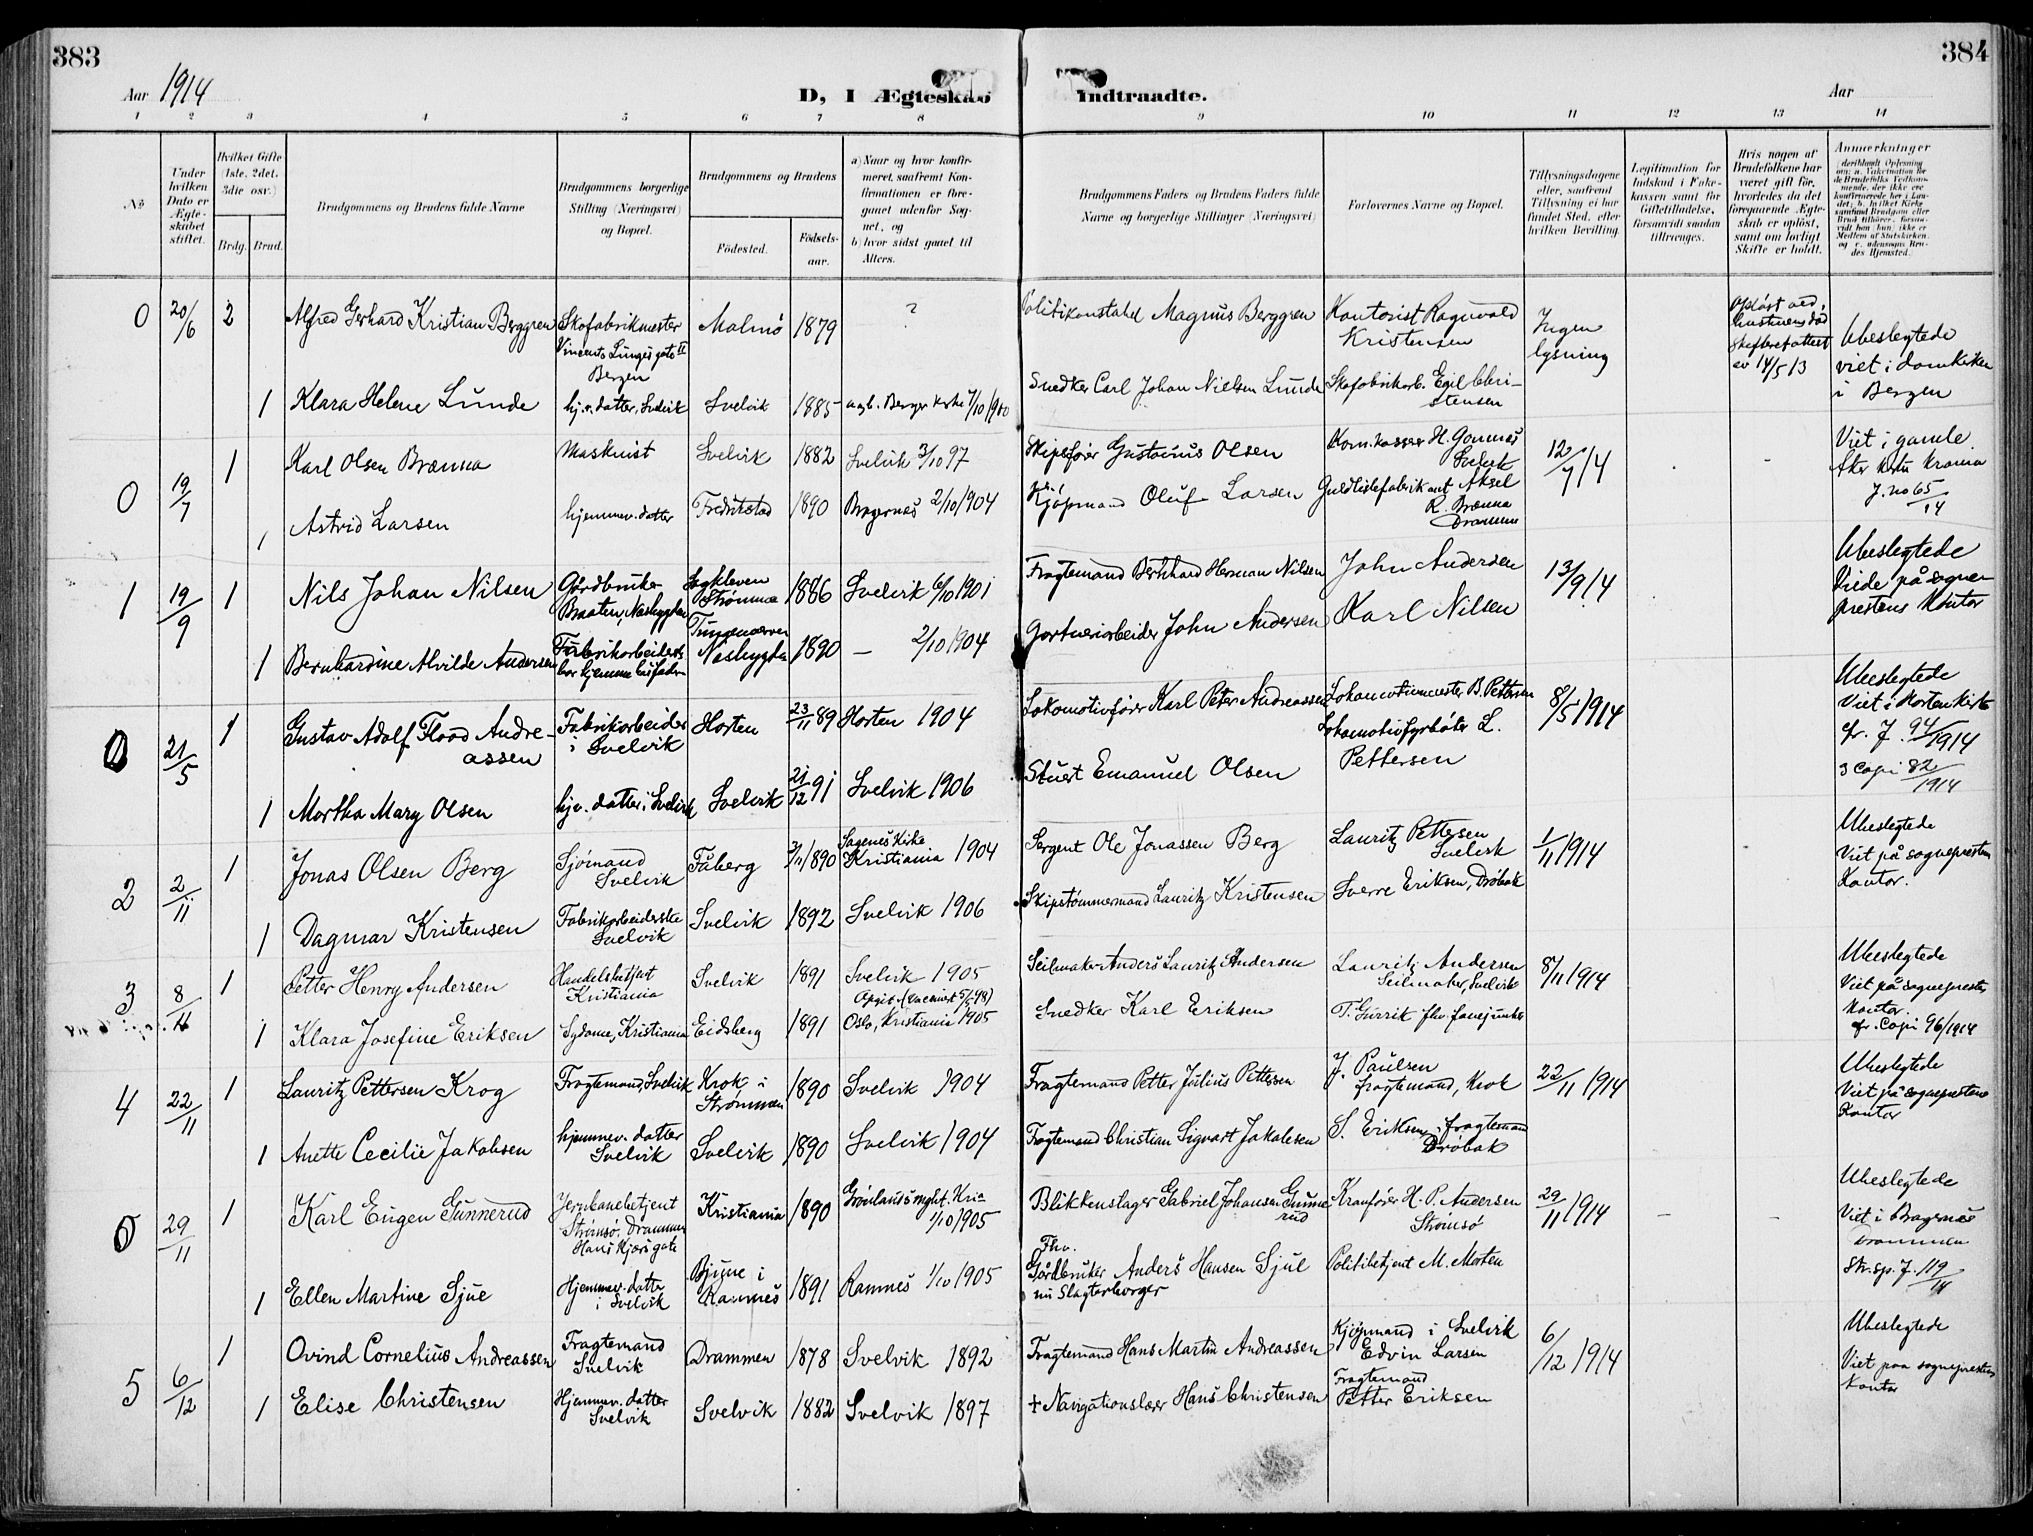 383
384
Aar 1914
D, I Ægteskab Indtraadte.
Aar
1 2 3 4 5 6 7 8 9 10 11 12 13 14
No
Under hvilken Dato er Ægteskabet stiftet.
Hvilket Gifte (1ste, 2det, 3die osv.)
Brdg. Brud.
Brudgommens og Brudens fulde Navne
Brudgommens borgerlige Stilling (Næringsvei) og Bopæl.
Brudgommens og Brudens
Fødested.
Fødselsaar.
a) Naar og hvor konfirmeret, saafremt Konfirmationen er foregaaet udenfor Sognet, og
b) hvor sidst gaaet til Alters.
Brudgommens Faders og Brudens Faders fulde Navne og borgerlige Stillinger (Næringsvei)
Forlovernes Navne og Bopæl.
Tillysningsdagene eller, saafremt Tillysning ei har fundet Sted, efter hvilken Bevilling.
Legitimation for Indskud i Enkekassen samt for Giftetilladelse, forsaavidt saadan tiltrænges.
Hvis nogen af Brudefolkene har været gift før, hvorledes da det foregaaende Ægteskab er opløst, samt om lovligt Skifte er holdt.
Anmerkninger
0 20/6 2 Alfred Gerhard Kristian Berggren Skofabrikmester Malmö 1879 ? Politikonstabel Magnus Berggren Kontorist Ragnvald Kristensen Ingen lysning
Vincents Lunges gate II Bergen
Opløst ved hustruens død Skifteretattest av 14/5 13
Ubeslegtede viet i domkirken i Bergen
1 Klara Helene Lunde hj.v. datter, Svelvik Svelvik 1885 Berger kirke 7/10 1900 Snedker Carl Johan Nielsen Lunde Skofabrikarb. Egil Christensen
0 19/7 1 Karl Olsen Brænna Maskinist Svelvik 1882 Svelvik 3/10 97 Skipsfører Gustavus Olsen Kom.kasser H. Svelvik 12/7 14
Viet i gamle Aker kirke Krania J. no 65/14
1 Astrid Larsen hjemmev. datter Fredrikstad 1890 Bragernes 2/10 1904 Kjøpmand Oluf Larsen Guldlistefabrikant Aksel R. Brænna Drammen
1 19/9 1 Nils Johan Nilsen Gårdbruker Braaten, Nesbygden Strømme 1886 Svelvik 6/10 1901 Fragtemand Bernhard Herman Nilsen John Andersen 13/9 14
Ubeslegtede Viede på sogneprestens kontor
1 Bernhardine Alvilde Andersen Fabrikarbeiderske bor hjemme hos fader Nesbygden 1890 — 2/10 1904 Gartneriarbeider John Andersen Karl Nilsen
0 21/5 1 Gustav Adolf Flood Andreassen Fabrikarbeider i Svelvik Horten 23/11 89 Horten 1904 Lokomotivfører Karl Peter Andreassen Lokomotivmester B. Pettersen 8/5 1914
Ubeslegtede Viet i Horten kirke cfr. J. 94/1914
3 Copi 82/1914
1 Martha Mary Olsen hjv. datter i Svelvik Svelvik 21/12 91 Svelvik 1906 Stuert Emanuel Olsen Lokomotivfyrbøter L. Pettersen
2 2/11 1 Jonas Olsen Berg Sjømand Svelvik Fåberg 3/11 1890 Sagenes Kirke Kristiania 1904 Sergent Ole Jonassen Berg Lauritz Pettersen Svelvik 1/11 1914
Ubeslegtede Viet på sogneprestens Kontor.
1 Dagmar Kristensen Fabrikarbeiderske Svelvik Svelvik 1892 Svelvik 1906 Skipstømmermand Lauritz Kristensen Sverre Eriksen, Drøbak
3 8/11 1 Petter Henry Andersen Handelsbetjent Kristiania Svelvik 1891 Svelvik 1905 Seilmaker Anders Lauritz Andersen Lauritz Andersen Seilmaker, Svelvik 8/11 1914
Ubeslegtede Viet på sogneprestens kontor. cfr. Copi 96/1914
1 Klara Josefine Eriksen Sydame, Kristiania Eidsberg 1891 Oslo, Kristiania 1905 Snedker Karl Eriksen T. Girrik fhv. fanejunker
4 22/11 1 Lauritz Pettersen Krog Fragtemand, Svelvik Krok i Strømmen 1890 Svelvik 1904 Fragtemand Petter Julius Pettersen J. Paulsen fragtemand, Krok 22/11 1914
Ubeslegtede Viet på sogneprestens Kontor
1 Anette Cecilie Jakobsen hjemmev. datter Svelvik Svelvik 1890 Svelvik 1904 Fragtemand Christian Sigvart Jakobsen S. Eriksen, fragtemand Drøbak
0 29/11 1 Karl Eugen Gunnerud Jernbanebetjent Strømsø, Drammen Hans Kjærs gate Kristiania 1890 Grønlands mght. Kria 1/10 1905 Blikkenslager Gabriel Johansen Gunnerud Kranfører H. P. Andersen Strømsø 29/11 1914
Ubeslegtede Viet i Bragernes Drammen Str.sp. J. 119/14
1 Ellen Martine Sjue Hjemmev. datter i Svelvik Bjune i Ramnes 1891 Ramnes 1/10 1905 Fhv. Gårdbruker Anders Hansen Sjue nu Slagterborger Politibetjent M. Morten
5 6/12 1 Ovind Cornelius Andreassen Fragtemand Svelvik Drammen 1878 Svelvik 1892 Fragtemand Hans Martin Andreassen Kjøpmand i Svelvik Edvin Larsen 6/12 1914
Ubeslegtede Viet paa sogneprestens kontor
1 Elise Christensen Hjemmev. datter Svelvik Svelvik 1882 Svelvik 1897 + Navigationslærer Hans Christensen Fragtemand Petter Eriksen